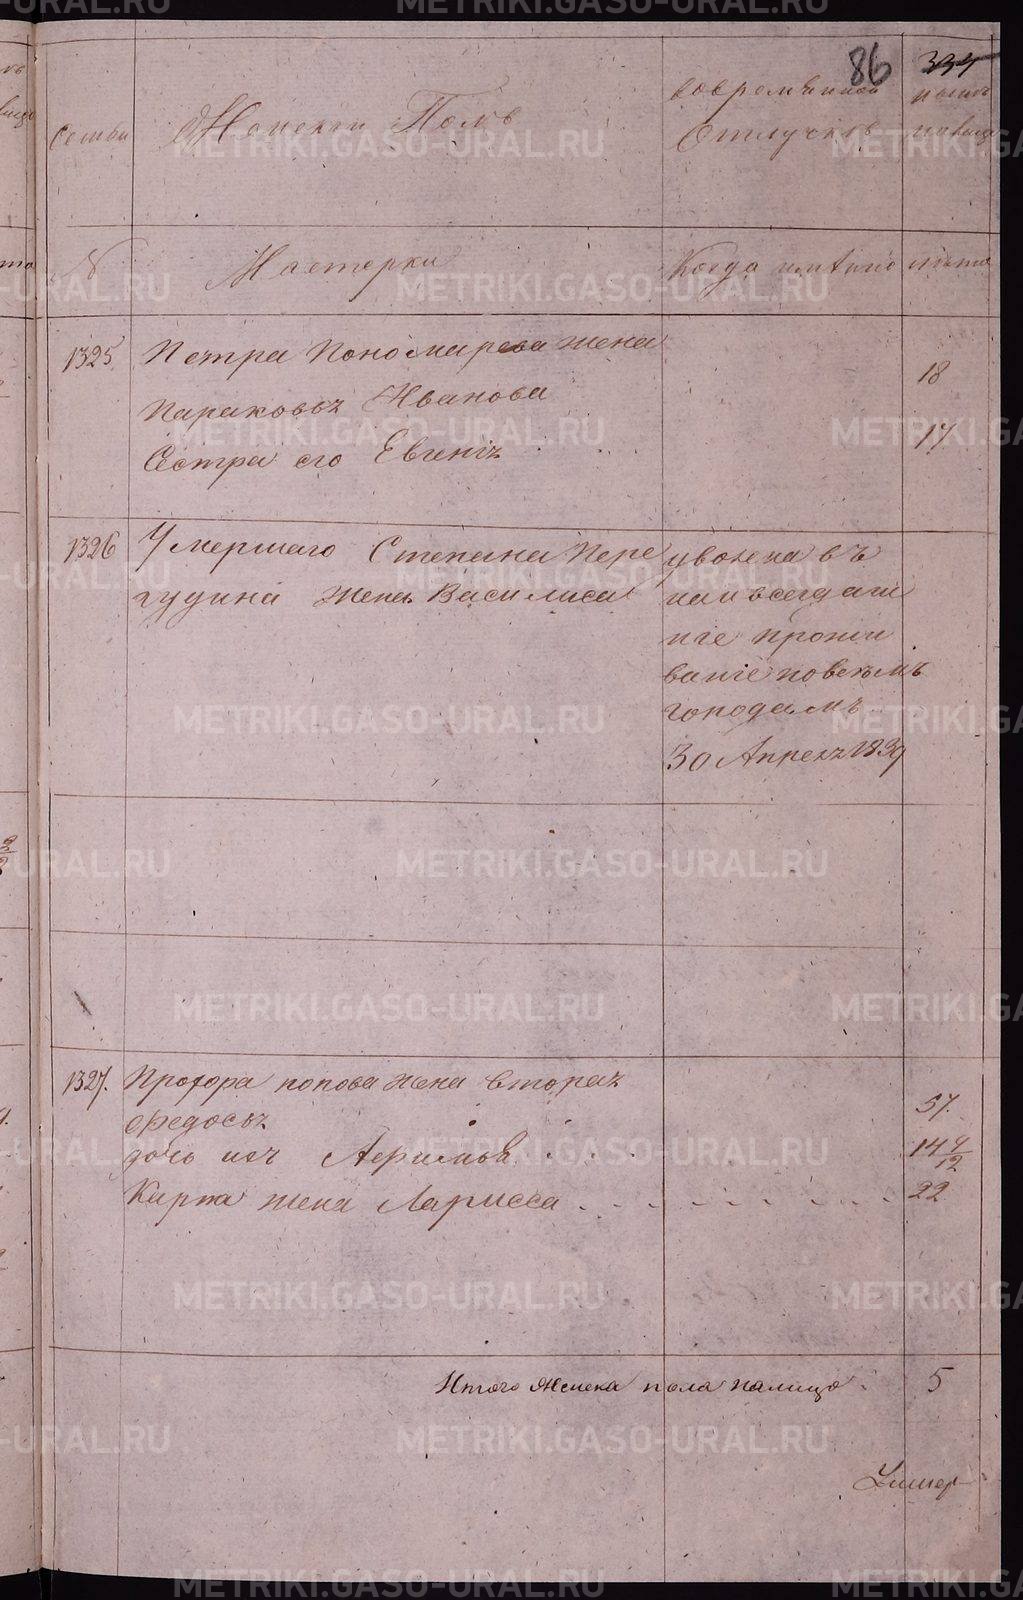 86
334
Семьи
Женский Полъ
во временной
отлучкѣ
нынѣ
на лицо
№
Мастерки
Когда имянно
лѣта
1325
Петра Пономарева жена
Парасковья Иванова
18
Сестра его Евгенія
17
1326
Умершаго Степана Пере
гудина жена Василиса
уволена въ
наивсегдаш
ніе прожи
ваніе по всемъ
городамъ
30 Апреля 1839
1327.
Прохора Попова жена вторая
Федосья
57.
дочь ихъ
14 4/12
Карпа жена Ларисса
22
Итого женска пола налицо
5
METRIKI.GASO-URAL.RU